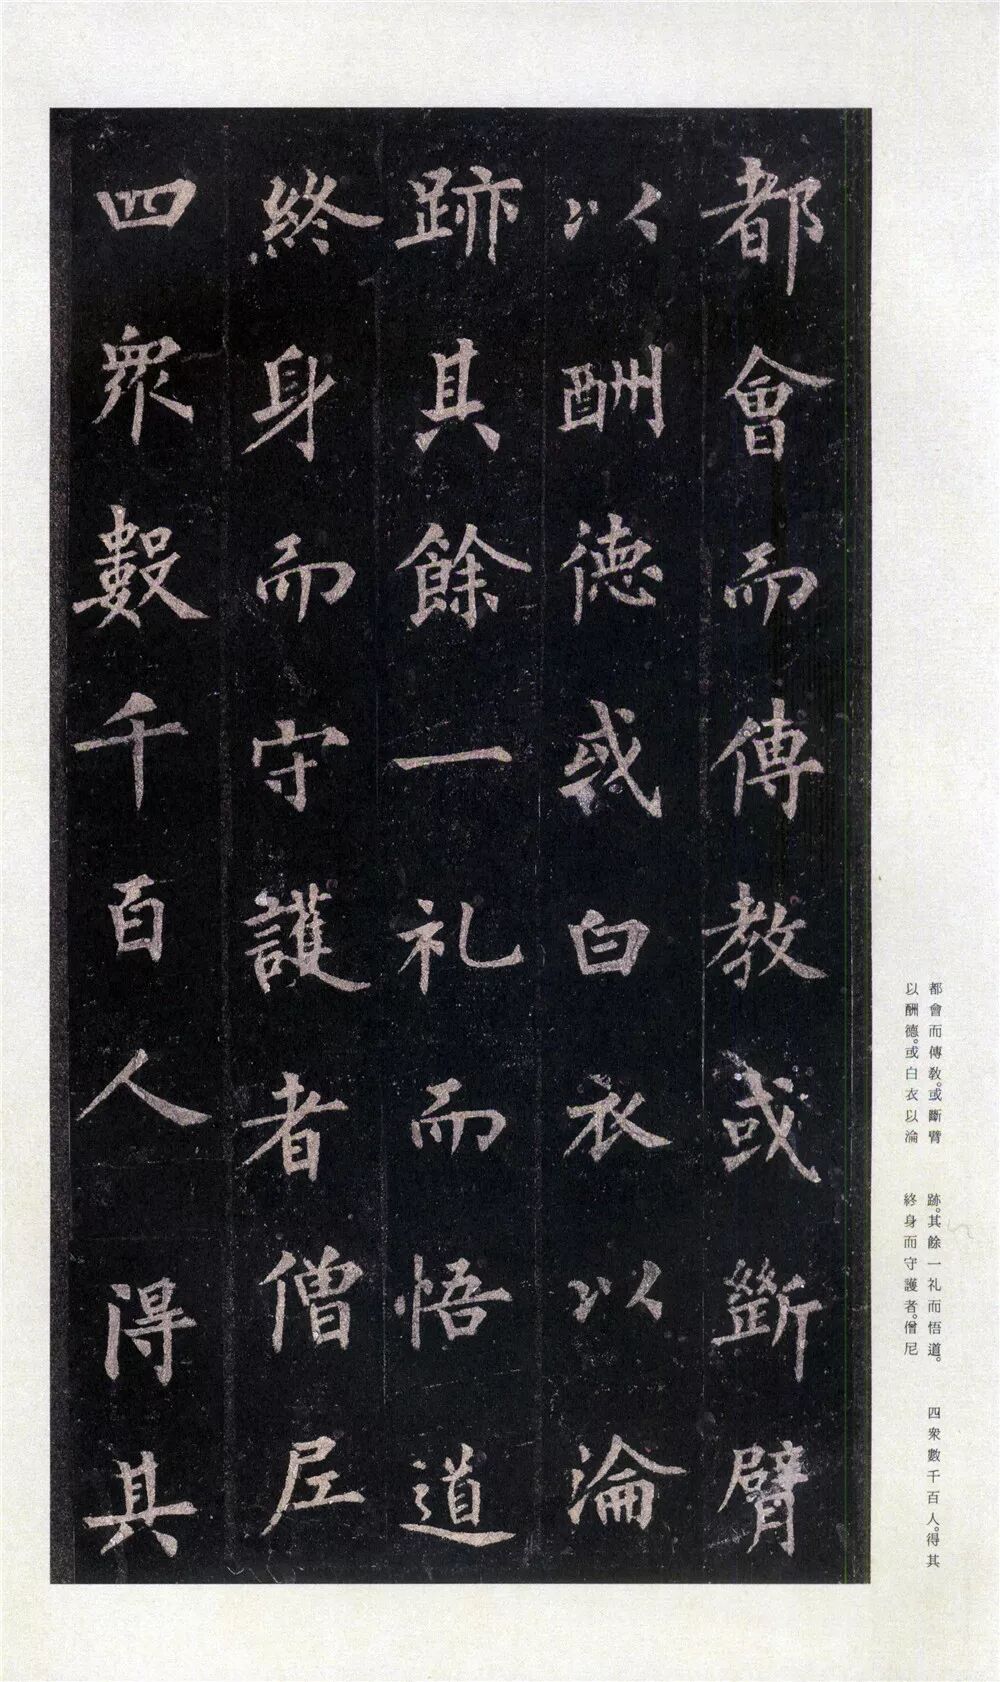 都會而傳教或斷臂
以酬德或白衣以淪
跡其餘一礼而悟道
終身而守護者僧尼
四衆數千百人得其
都會而傳教。或斷臂
以酬德。或白衣以淪
跡。其餘一礼而悟道。
終身而守護者。僧尼
四衆數千百人。得其